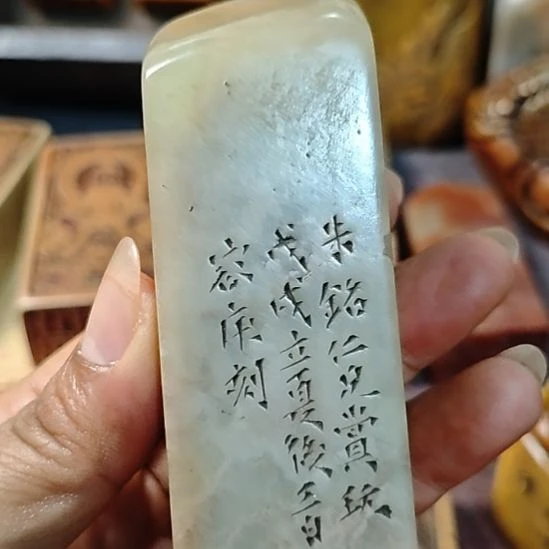 米銘仁兄賞玩
戊戌立夏後三日
容庚刻